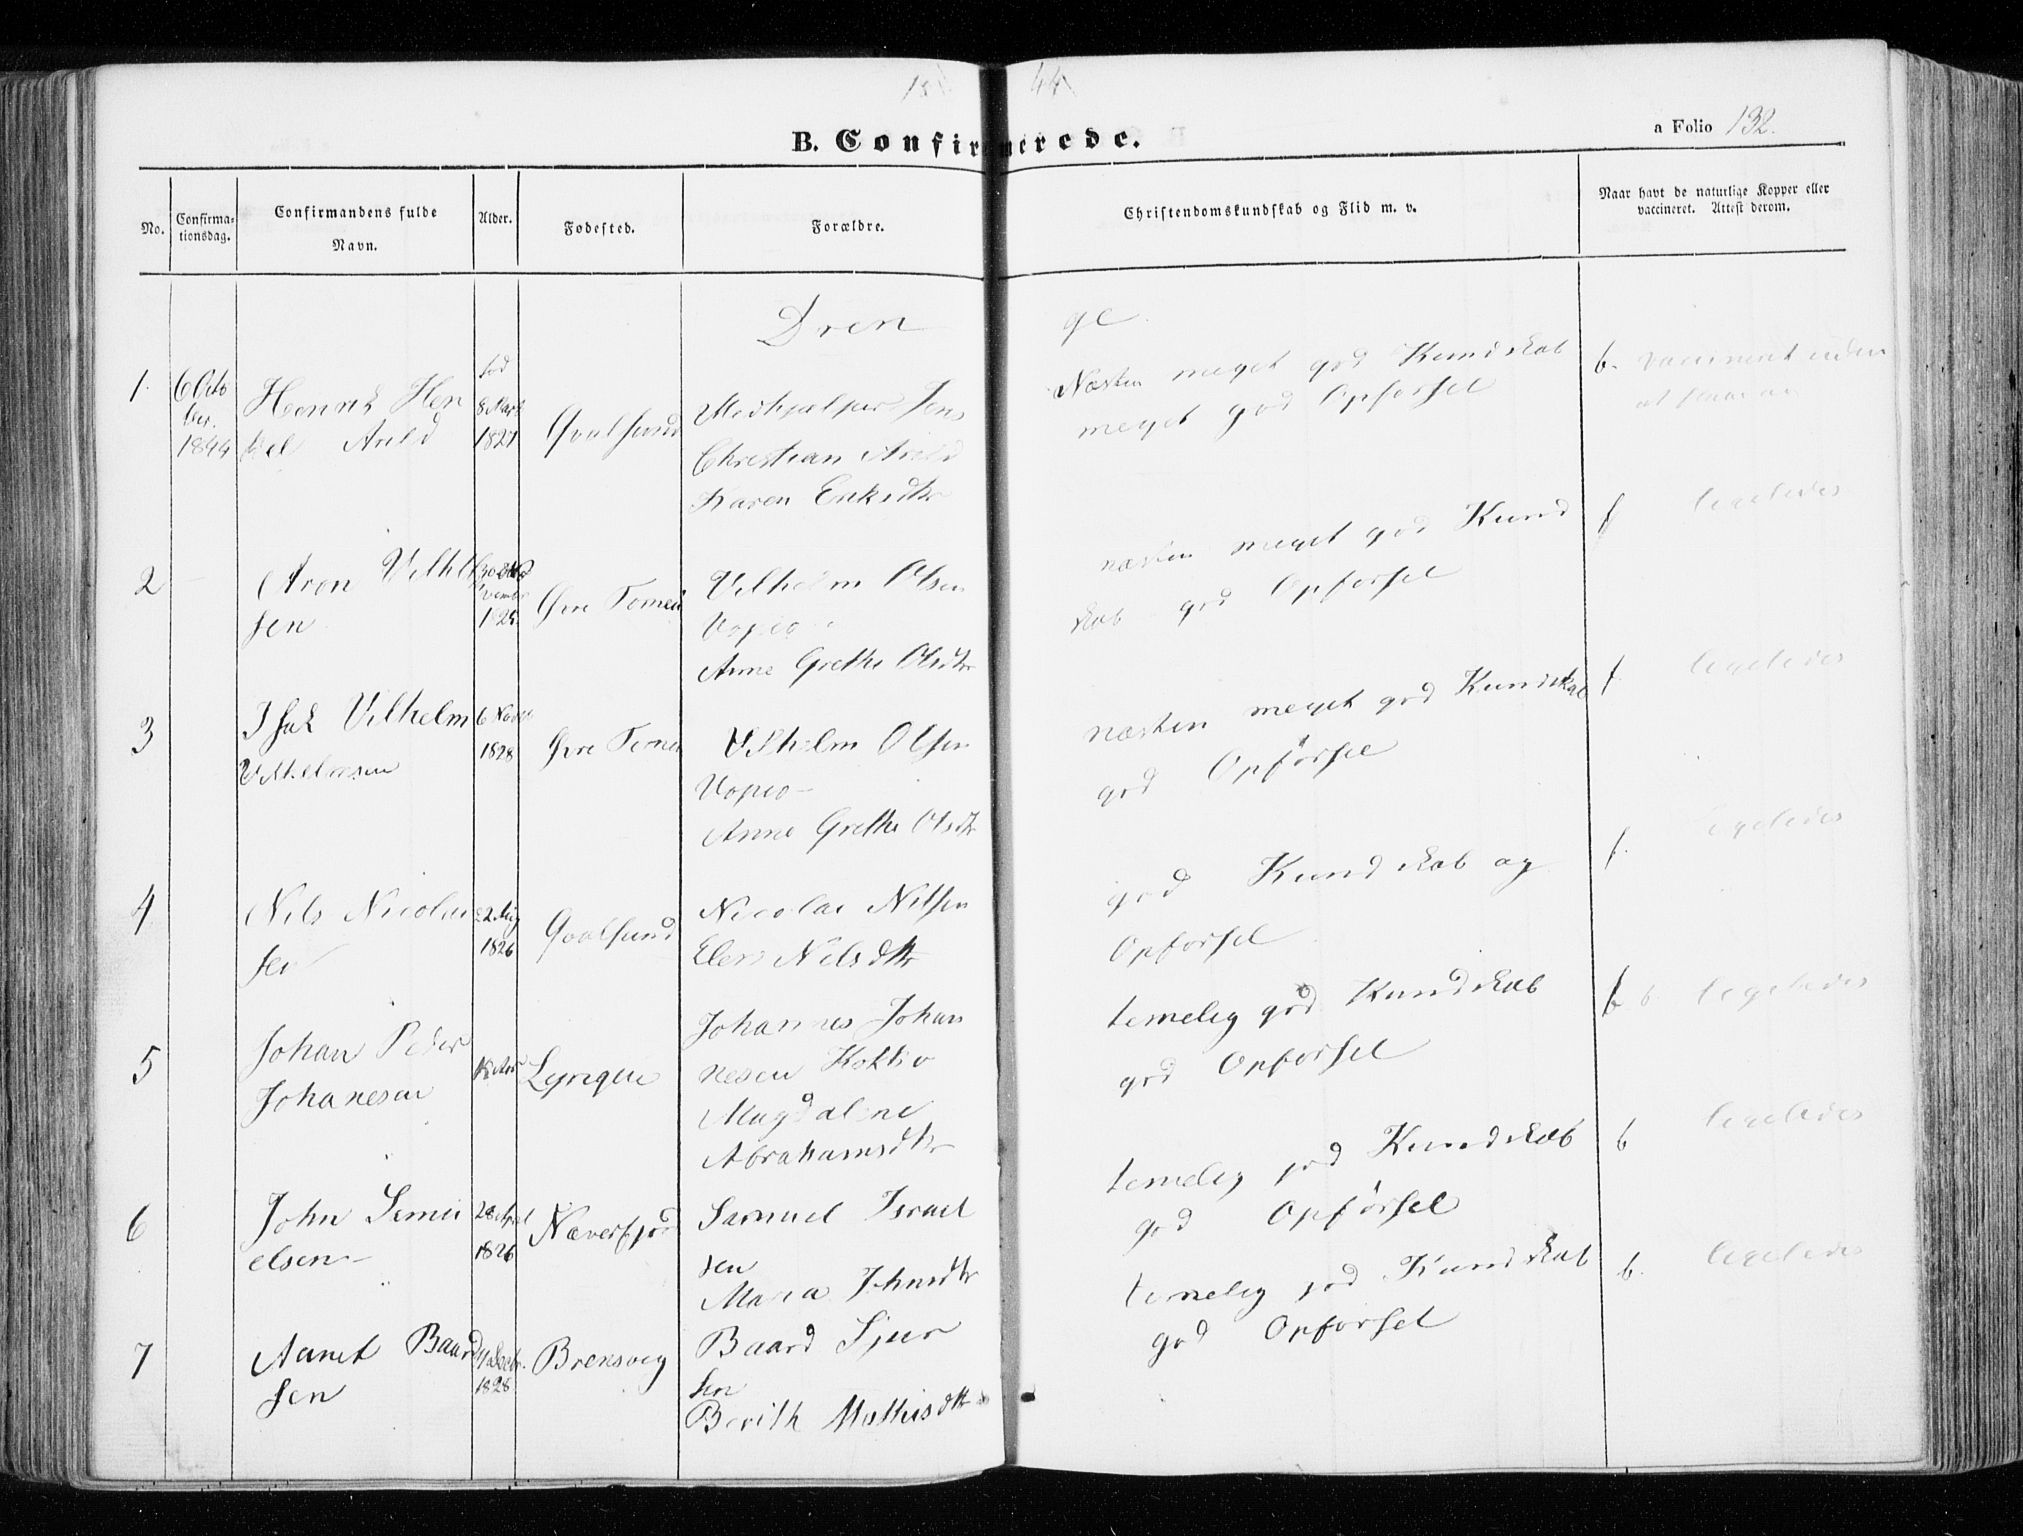 18 44
B. Confirmerede.
a Folio 132.
No.
Confirma-
tionsdag.
Confirmandens fulde
Navn.
Alder.
Fødested.
Forældre.
Christendomskundskab og Flid m. v.
Naar havt de naturlige Kopper eller
vaccineret. Attest derom.
Dren ge
1. 6 Octo
ber.
1844
Henrik Hen
kel Arild
fød
8 Mart
1827
Qvalsund
Medhjælper Jens
Christian Arild
Karen Eriksdtr
Næsten meget god Kundskab
meget god Opførsel
b. vaccineret uden
2
Aron Vilhel
sen
1825
Øvre Tornea
Vilhelm Olsen
Vopio
Anne Grethe Olsdtr
næsten meget god Kund
skab god Opførsel
ligeledes
3
Isak Vilhelm
Vilhelmsen
6 Nov
1828
Øvre Tornea
Vilhelm Olsen
Vopio
Anne Grethe Olsdtr
næsten meget god Kundskab
god Opførsel
ligeledes
4
Nils Nicolai
sen
22 Aug
1826
Qvalsund
Nicolai Nilsen
Elen Nilsdtr
god Kundskab og
Opførsel
ligeledes
5
Johan Peder
Johanesen
Lyngen
Johannes Johan
nesen Kokko
Magdalene
Abrahamsdtr
temelig god Kundskab
god Opførsel
b ligeledes
6
John Samu
elsen
28 April
1826
Næverfjord
Samuel Israel
sen
Maria Johnsdtr
temelig god Kundskab
god Opførsel
b ligeledes
7
Aamet Baard
sen
Decbr.
1828
Brensvig
Baard Sjur
sen
Berith Mathisdtr
temelig god Kundskab
god Opførsel
b. ligeledes